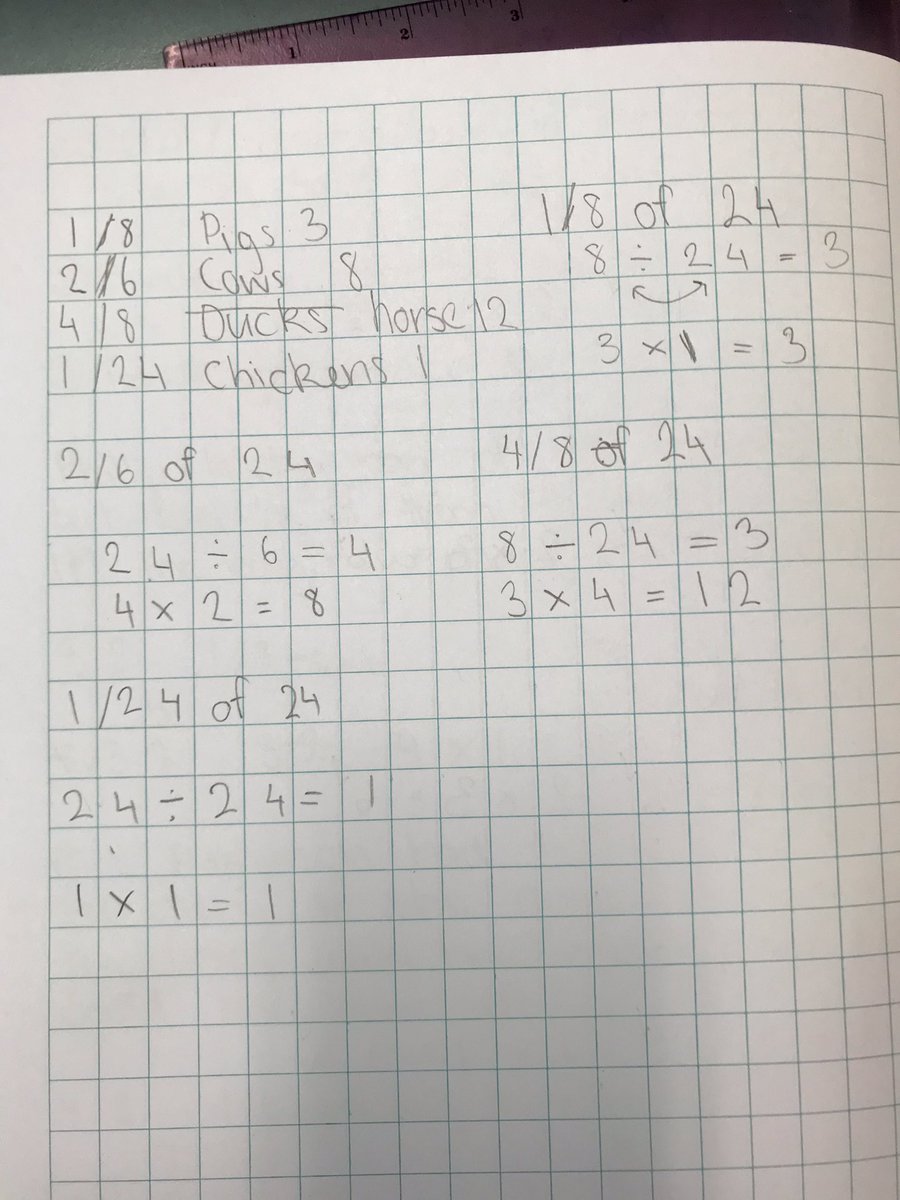 1 2 3
1/8 Pigs 3
2/6 Cows 8
4/8 Ducks horse 12
1/24 Chickens 1
1/8 of 24
8 ÷ 24 = 3
3 × 1 = 3
2/6 of 24
24 ÷ 6 = 4
4 × 2 = 8
4/8 of 24
8 ÷ 24 = 3
3 × 4 = 12
1/24 of 24
24 ÷ 24 = 1
1 × 1 = 1